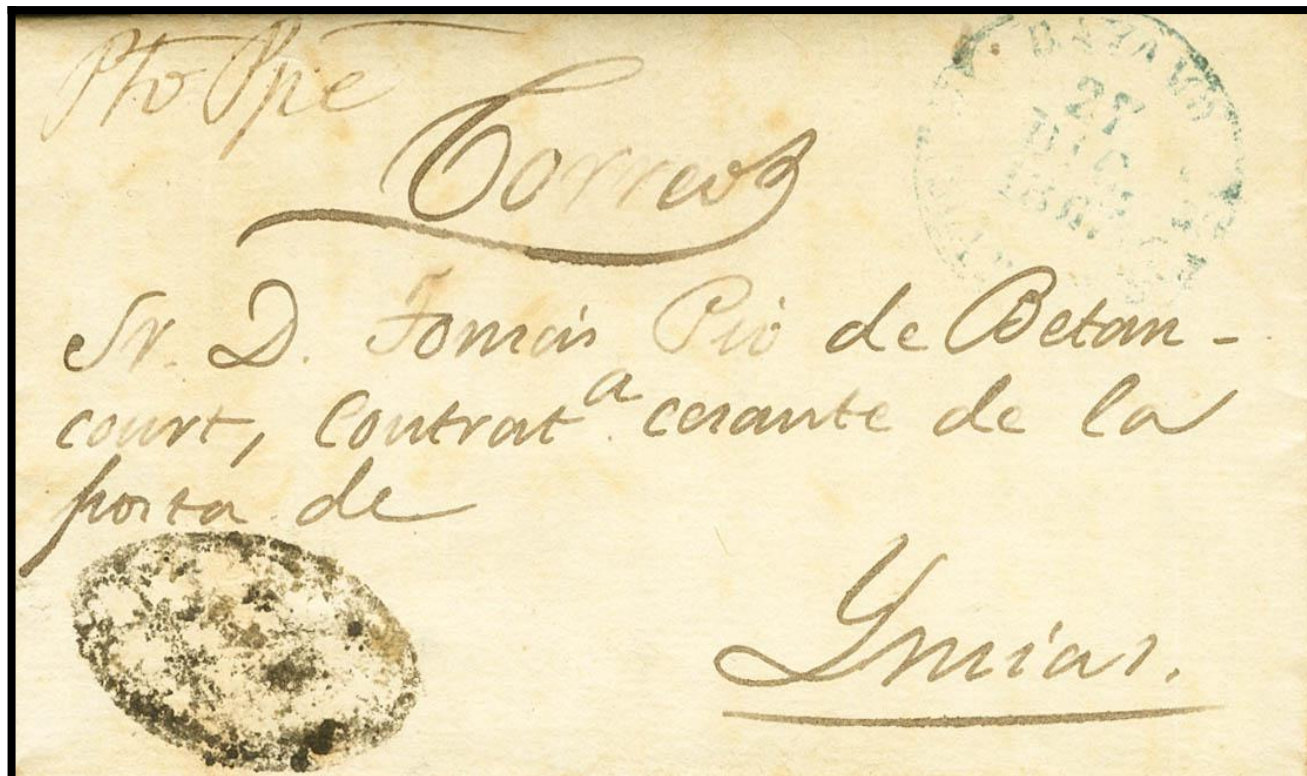 Pto Ppe
Correos
BATAVANO
27
DIC
Sr. D. Tomás Pio de Betan-
court, Contrat.ª cesante de la
posta de
Ymias.